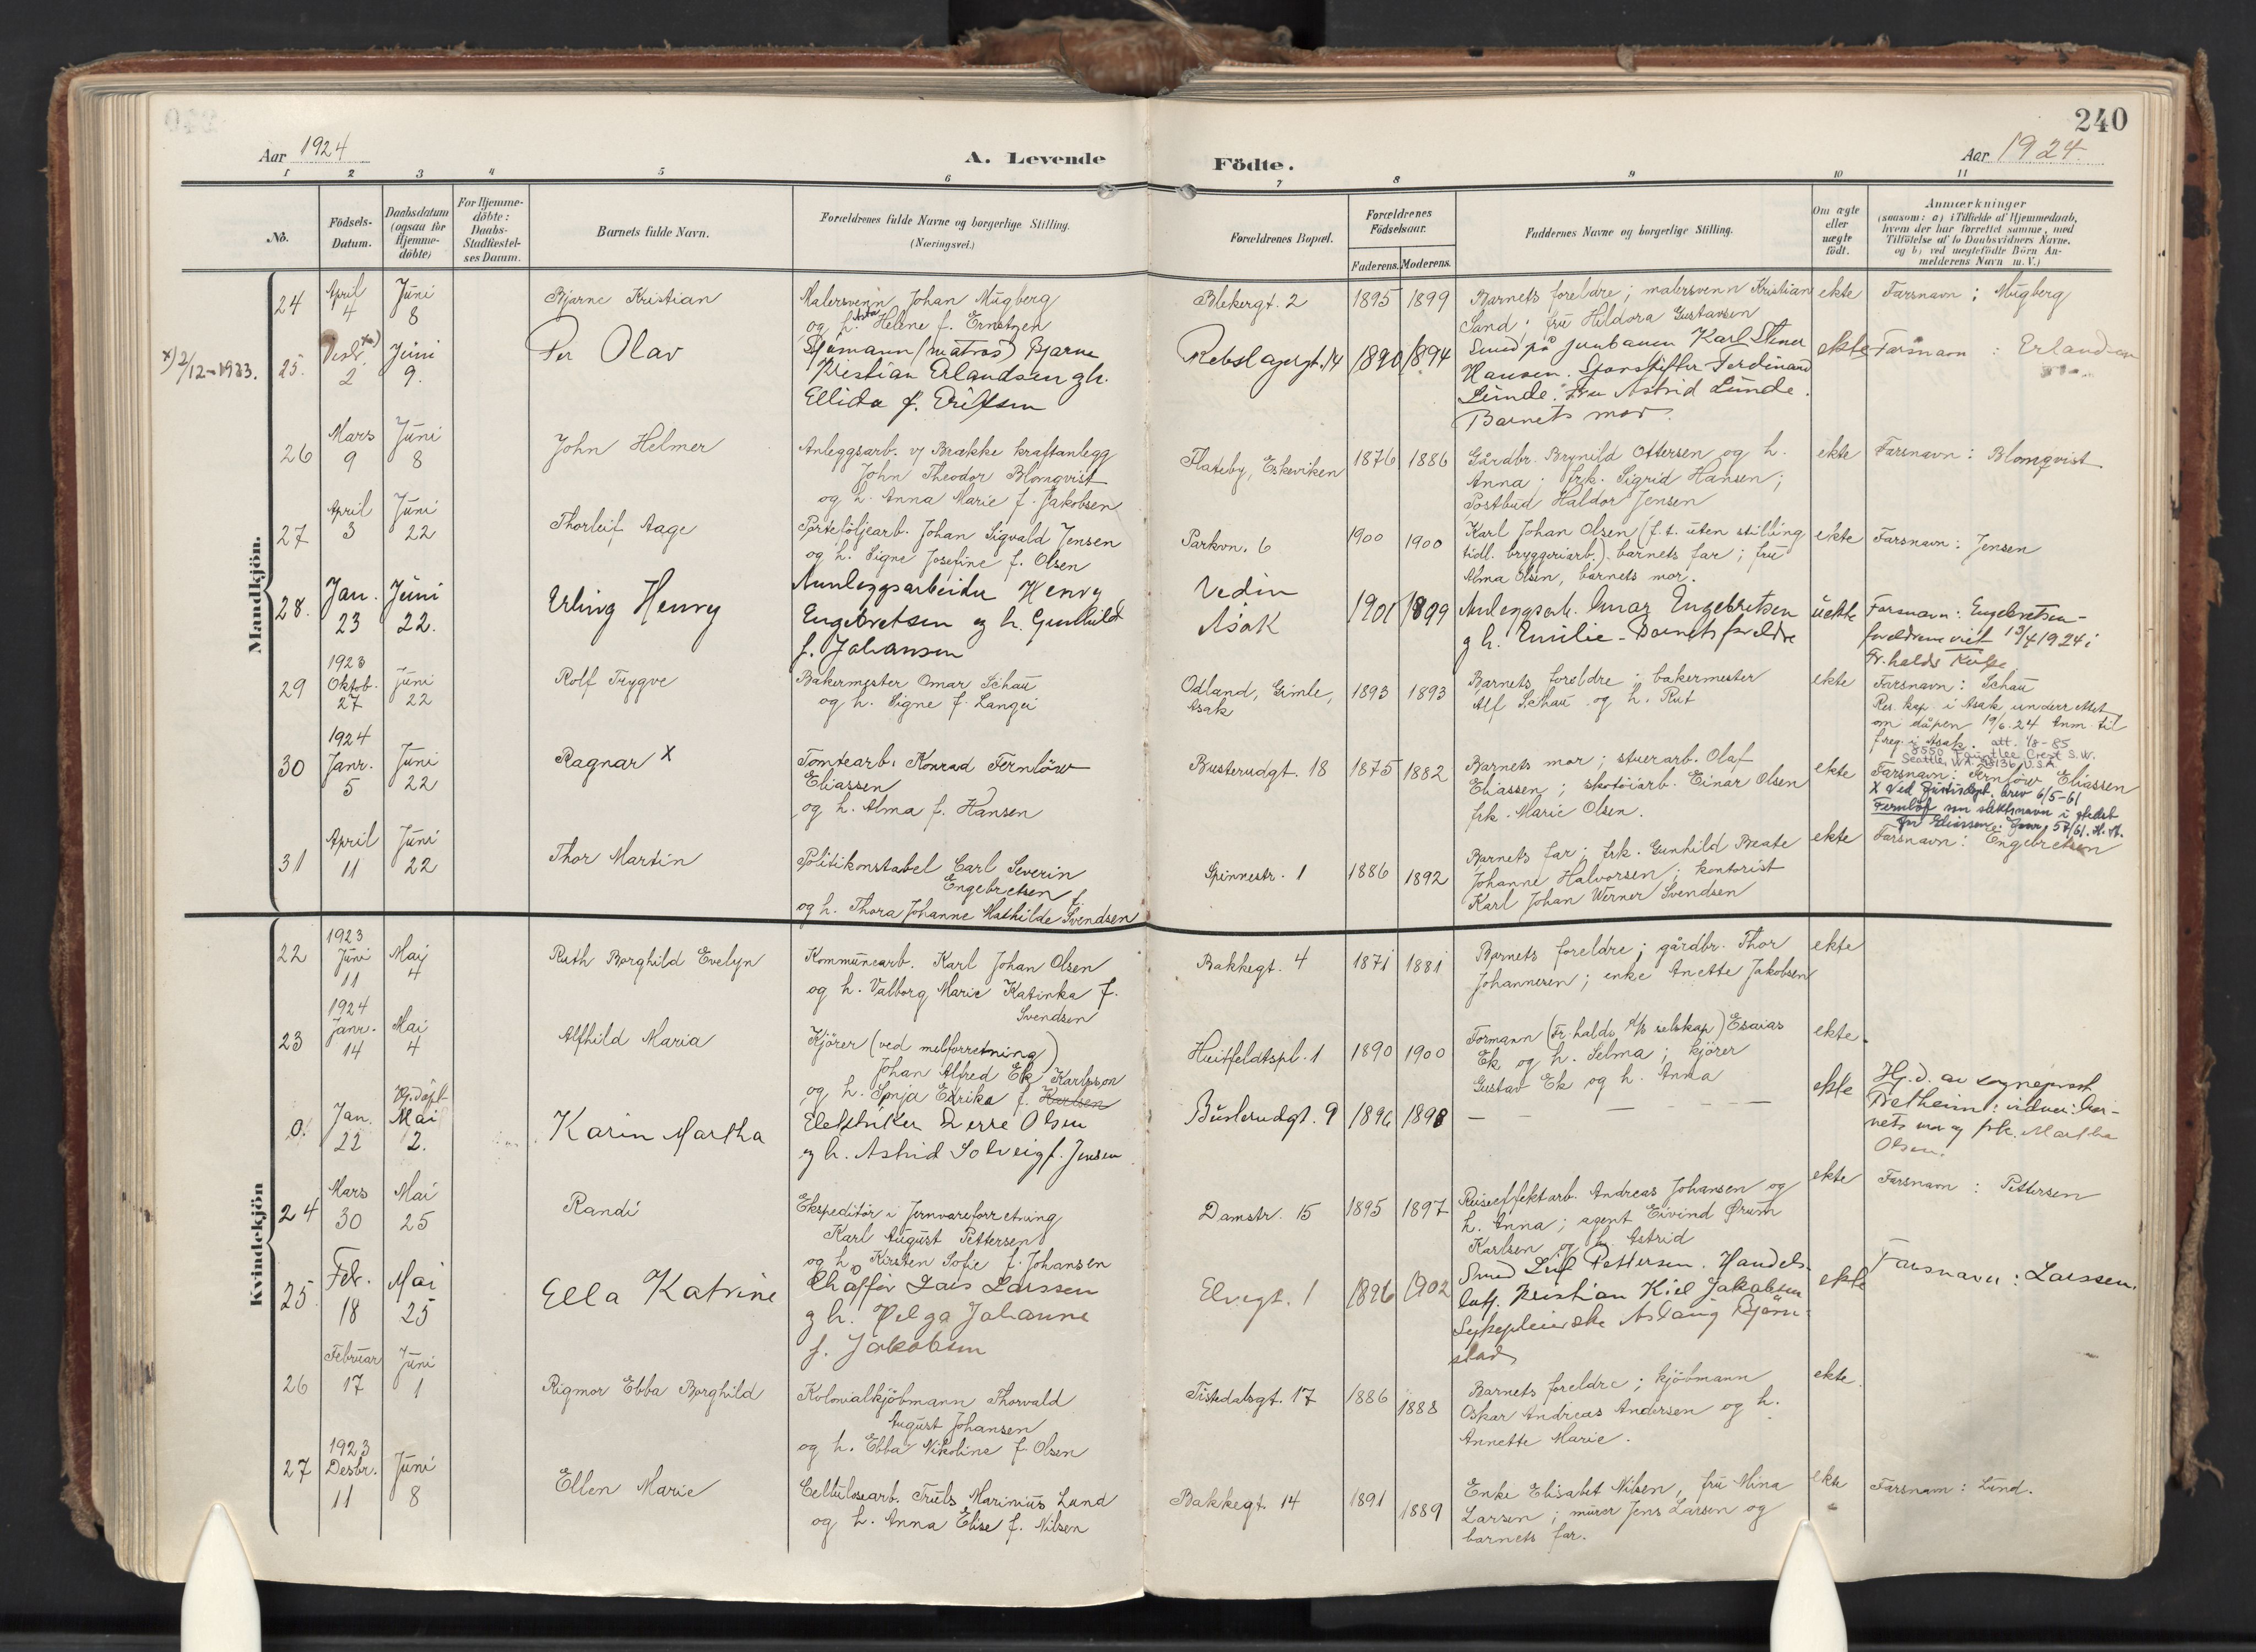 240
Aar 1924
A. Levende Födte.
Aar 1924
1 2 3 4 5 6 7 8 9 10 11
No.
Födsels-Datum.
Daabsdatum (ogsaa for Hjemme-döbte)
For Hjemme-döbte: Daabs-Stadfæstel-ses Datum.
Barnets fulde Navn.
Forældrenes fulde Navne og borgerlige Stilling.
(Næringsvei.)
Forældrenes Bopæl.
Forældrenes Födselsaar.
Faderens. Moderens.
Faddernes Navne og borgerlige Stilling.
Om ægte eller uægte födt.
Anmærkninger
(saasom: a) i Tilfælde af Hjemmedaab,
hvem der har forrettet samme, med
Tilföielse af to Daabsvidners Navne,
og b) ved uægtefödte Börn An-
melderens Navn m. V.)
Mandkjön.
24 April 4 Juni 8
Bjarne Kristian
Malersvenn Johan Mugberg
og h. Asta Helene f. Ernstzen
Blekergt. 2
1895 1899
Barnets foreldre; malersvenn Kristian
Sand; fru Hildora Gustavsen
ekte
Farsnavn: Mugberg
x) 2/12-1923.
25. Desbr. x) 2 Juni 9.
Per Olav
Sjömann (matros) Bjarne
Kristian Erlandsen g h.
Ellida f. Eriksen
Rebslagergt. 14
1890 1894
Smed på Jernbanen Karl Stener
Hansen. Sporskifter Ferdinand
Lunde. Fru Astrid Lunde.
Barnets mor.
ekte
Farsnavn: Erlandsen
26 Mars 9 Juni 8
John Helmer
Anleggsarb. v/ Brekke kraftanlegg
John Theodor Blomqvist
og h. Anna Marie f. Jakobsen
Flateby, Eskeviken
1876 1886
Gårdbr. Brynild Ottersen og h.
Anna; frk. Sigrid Hansen;
Postbud Haldor Jensen
ekte
Farsnavn: Blomqvist
27 April 3 Juni 22
Thorleif Aage
Porteföljearb. Johan Sigvald Jensen
og h. Signe Josefine f. Olsen
Parkvn. 6
1900 1900
Karl Johan Olsen (f.t. uten stilling
tidl. bryggeriarb.) barnets far; fru
Alma Olsen, barnets mor.
ekte
Farsnavn: Jensen
28. Jan. 23 Juni 22.
Erling Henry
Annleggsarbeider Henry
Engebretsen og h. Gunhild
f. Johansen
Vedin
Asak
1901 1899
Anleggsarb. Engebretsen
g h. Emilie - Barnets foreldre
uekte
Farsnavn: Engebretsen -
foreldrene viet 13/4 1924 i
Fr.halds Kirke.
29 1923 Oktob. 27 Juni 22
Rolf Trygve
Bakermester Omar Schau
og h. Signe f. Langei
Odland, Grimle,
Asak
1893 1893
Barnets foreldre; bakermester
Alf Schau og h. Rut
ekte
Farsnavn: Schau
Res. kap. i Asak underrettet
om dåpen 19/6.24 Anm. til
f.reg. i Asak.
att. 1/8-85
8550 Fauntlee Crest S.W.
Seattle, WA 98136 U.S.A.
30 1924 Janr. 5 Juni 22
Ragnar X
Tomtearb. Konrad Fernlöw
Eliassen
og h. Alma f. Hansen
Busterudgt. 18
1875 1882
Barnets mor; stuerarb. Olaf
Eliassen; skotöiarb. Einar Olsen
frk. Marie Olsen.
ekte
Farsnavn: Fernlöw Eliassen
X Ved Justisdept. brev 6/5-61
Fernlöf som slektsnavn i stedet
for Eliassen. Jour. 57/61.
31 April 11 Juni 22
Thor Martin
Politikonstabel Carl Severin
Engebretsen
og h. Thora Johanne Mathilde f. Svendsen
Spinnestr. 1
1886 1892
Barnets far; frk. Gunhild Beate
Johanne Halvorsen; kontorist
Karl Johan Werner Svendsen
ekte
Farsnavn: Engebretsen
Kvindekjön
22 1923 Juni 11 Mai 4
Ruth Borghild Evelyn
Kommunearb. Karl Johan Olsen
og h. Valborg Marie Katinka f.
Svendsen
Bakkegt. 4
1871 1881
Barnets foreldre; gårdbr. Thor
Johannesen; enke Anette Jakobsen
ekte
23 1924 Janr. 14 Mai 4
Alfhild Maria
Kjörer (ved melforretning)
Johan Alfred Ek
og h. Sonja Edrika f. Karlsen Karlsson
Huitfeldtspl. 1
1890 1900
Formann (Fr.halds A/S selskap) Esaias
Ek og h. Selma; kjörer
Gustav Ek og h. Anna
ekte.
0. Jan. 22 Hj.döpt Mai 2.
Karin Martha
Elektriker Sverre Olsen
g h. Astrid Solveig f. Jensen
Busterudgt. 9
1896 1898
—
ekte
Hj.d. av sogneprest
Tretheim: vidner: bar-
nets mor og frk. Martha
Olsen.
24 Mars 30 Mai 25
Randi
Ekspeditör i Jernvareforretning
Karl August Pettersen
og h. Kirsten Sofie f. Johansen
Damstr. 15
1895 1897
Reiseeffektarb. Andreas Johansen og
h. Anna; agent Eivind Ørum
Karlsen og h. Astrid
ekte
Farsnavn: Pettersen
25 Feb. 18 Mai 25
Ella Katrine
Chaffør Lars Larssen
g h. Helga Johanne
f. Jakobsen
Elvegt. 1
1896 1902
Smed Leif Pettersen. Handels-
betj. Kristian Kiel Jakobsen
Sykepleierske Aslaug Bjørn-
stad
ekte
Farsnavn: Larssen.
26 Februar 17 Juni 1
Rigmor Ebba Borghild
Kolonialkjöbmann Thorvald
August Johansen
og h. Ebba Nikoline f. Olsen
Tistedalsgt. 17
1886 1888
Barnets foreldre; kjöbmann
Oskar Andreas Andersen og h.
Annette Marie.
ekte.
27 1923 Desbr. 11 Juni 8
Ellen Marie
Cellulosearb. Truls Marinius Lund
og h. Anna Elise f. Nilsen
Bakkegt. 14
1891 1889
Enke Elisabet Nilsen, fru Mina
Larsen; murer Jens Larsen og
barnets far.
ekte
Farsnavn: Lund.